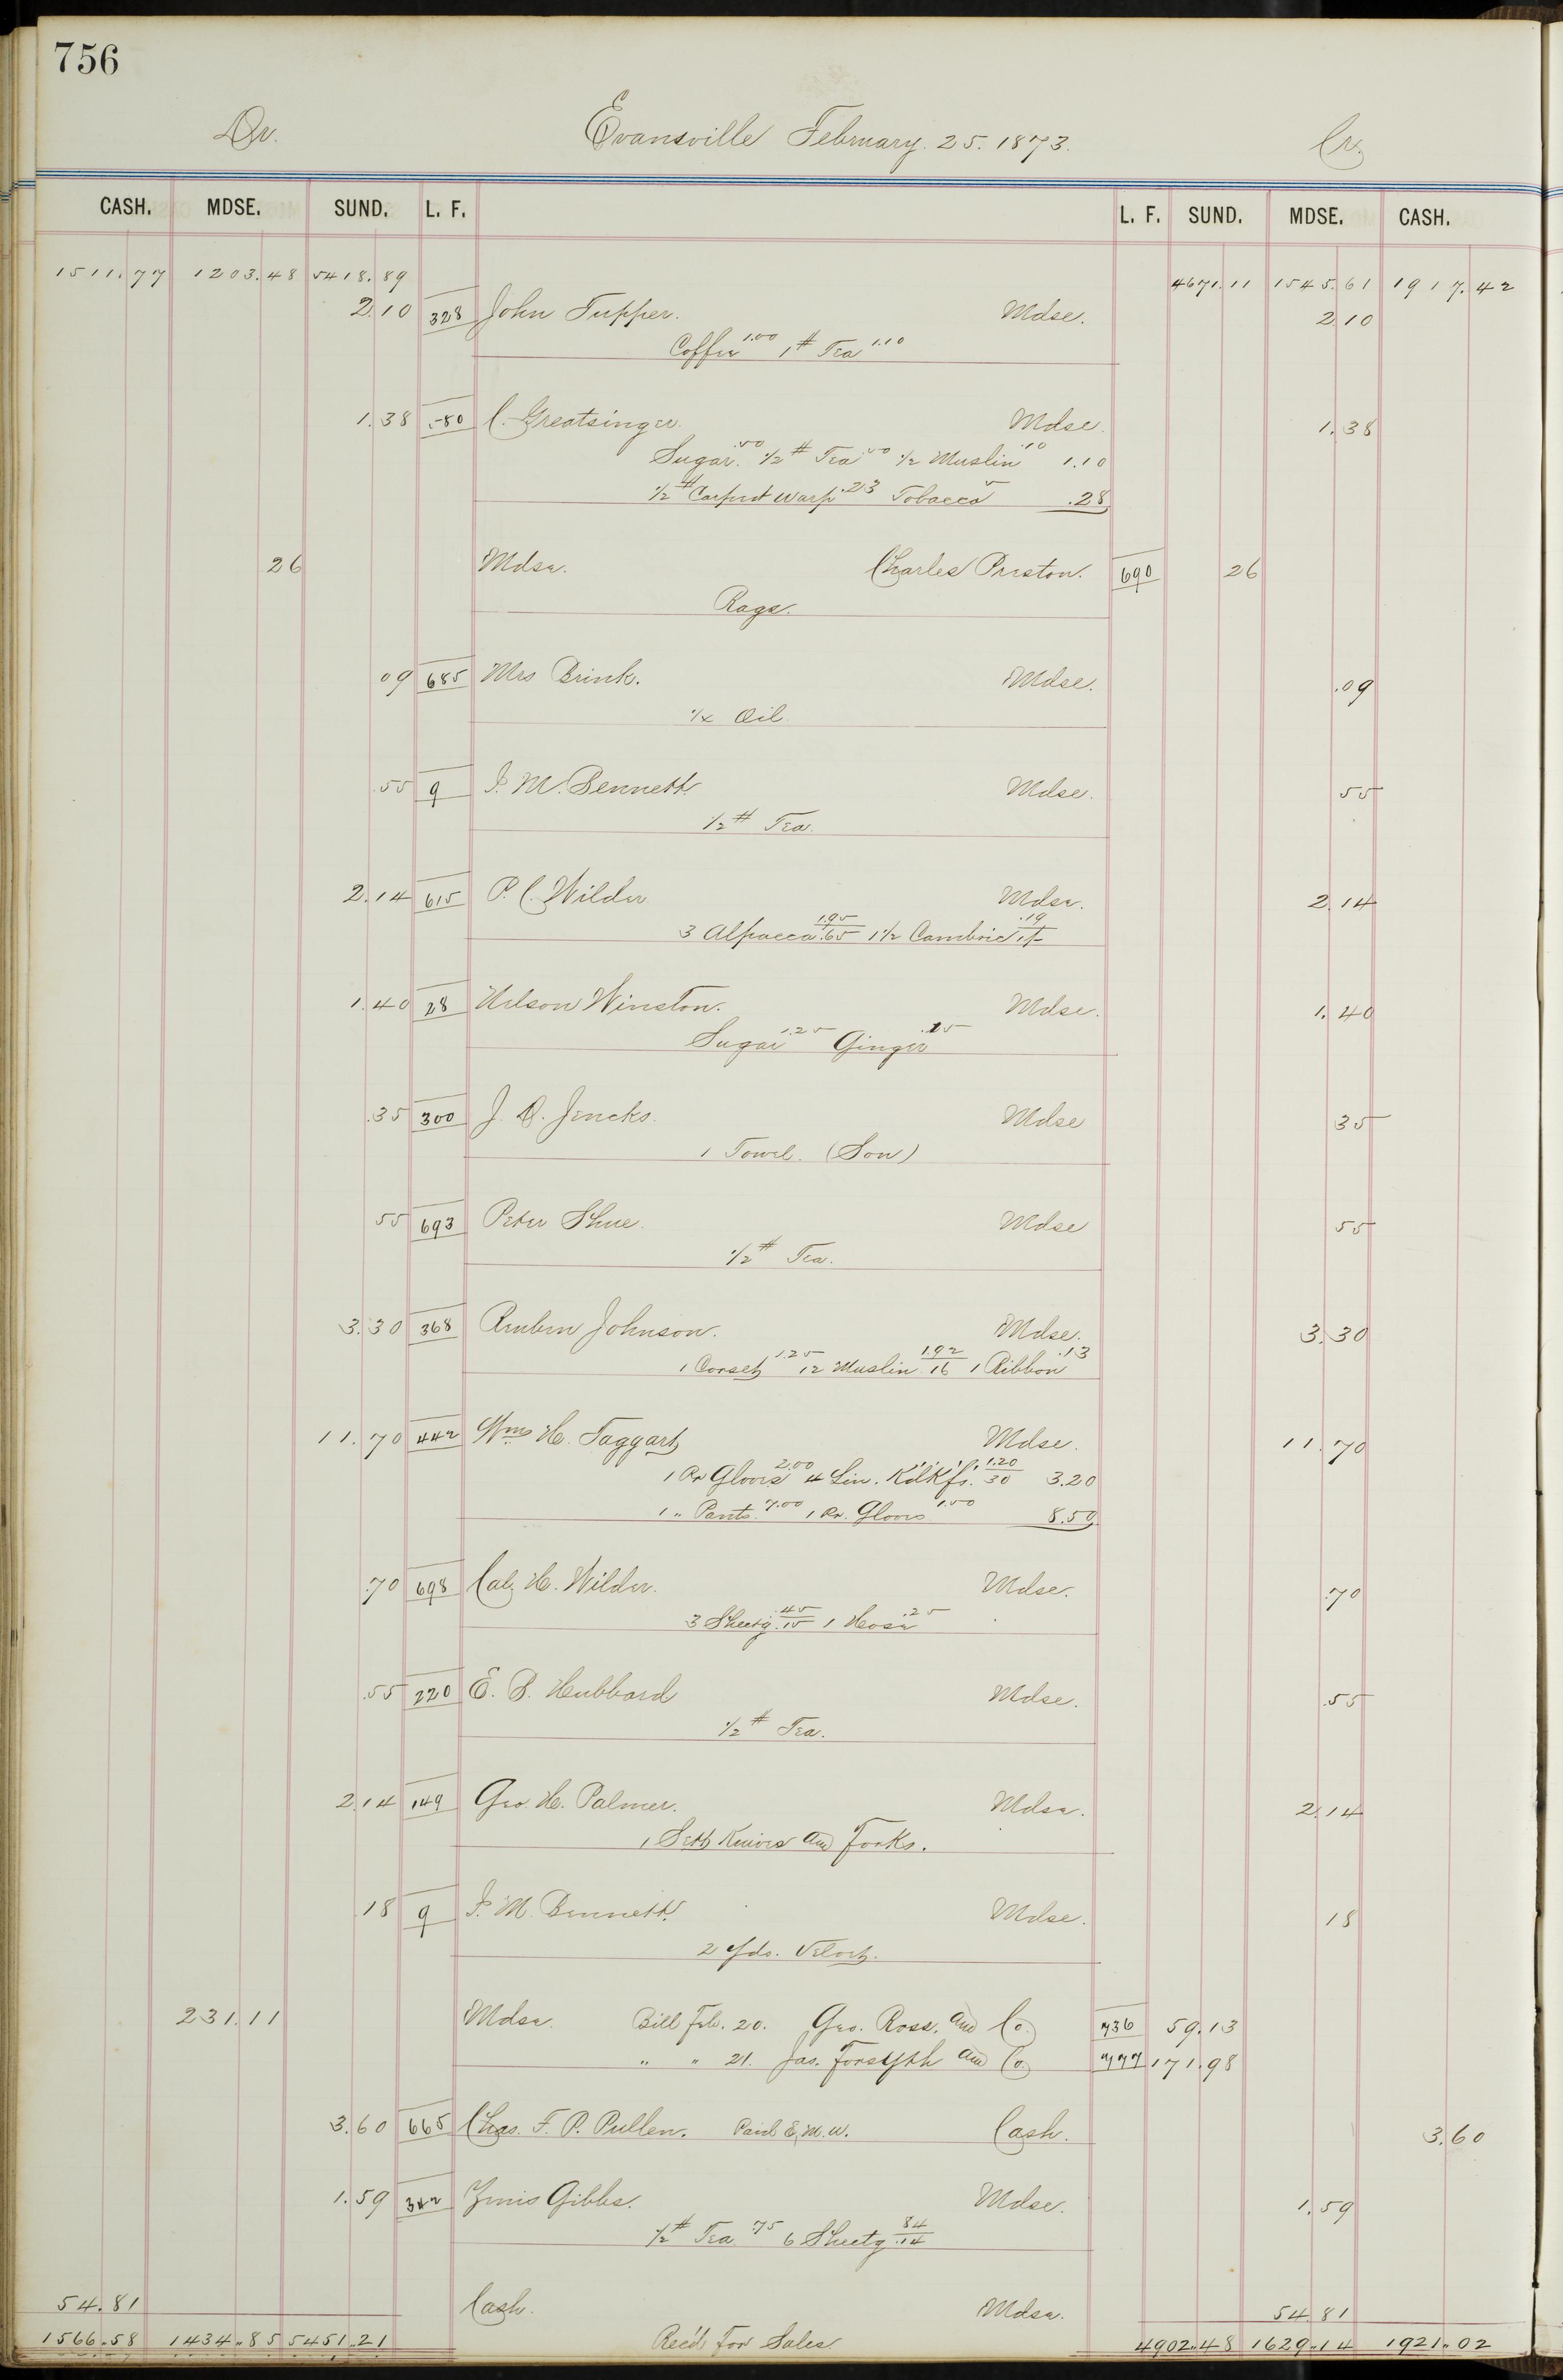 756
Dr. Evansville February. 25. 1873. Cr.
CASH. MDSE. SUND. L. F. L. F. SUND. MDSE. CASH.
1511.77 1203.48 5418.89 4671.11 1545.61 1917.42
2.10 328 John Tupper. Mdse. 2.10
Coffee 1.00 1# Tea 1.10
1.38 C. Greatsinger. Mdse. 1.38
Sugar .50 1/2# Tea .50 1/2 Muslin .10 1.10
1/2# Carpet warp .23 Tobacco 5 .28
26 Mdse. Charles Preston. 690 26
Rags.
09 685 Mrs Brink. Mdse. .09
Oil
.55 9 I. M. Bennett. Mdse. 55
1/2# Tea.
2.14 615 P. C. Wilder. Mdse. 2.14
3 Alpacca 1.95/.65 1 1/2 Cambric .19
1.40 28 Nelson Winston. Mdse. 1.40
Sugar 1.25 Ginger .15
.35 300 J. D. Jencks. Mdse 35
1 Towel. (Son)
55 693 Peter Shue. Mdse 55
1/2# Tea.
3.30 368 Reuben Johnson. Mdse. 3.30
1 Corset 1.25 12 Muslin 1.92/16 1 Ribbon .13
11.70 442 Wm H. Taggart Mdse. 11.70
1 Pr Gloves 2.00 4 Lin. Hdkfs. 1.20/30 3.20
1 " Pants. 7.00 1 Pr. Gloves 1.50 8.50
.70 698 Cal. H. Wilder. Mdse. .70
3 Sheetg .45/.15 1 Hose .25
.55 220 E. B. Hubbard Mdse. .55
1/2# Tea.
2.14 149 Geo. H. Palmer. Mdse. 2.14
1 Sett Knives and Forks.
18 9 I. M. Bennett. Mdse. 18
2 yds.
231.11 Mdse. Bill Feb. 20. Geo. Ross. and Co. 736 59.13
" " 21. Jas. Forsyth and Co. 777 171.98
3.60 665 Chas. F. P. Pullen. Paid E. M. W. Cash. 3.60
1.59 342 Zenis Gibbs. Mdse. 1.59
1/2# Tea .75 6 Sheetg 84/.14
54.81 Cash. Mdse. 54.81
1566.58 1434.85 5451.21 Rec'd For Sales 4902.48 1629.14 1921.02